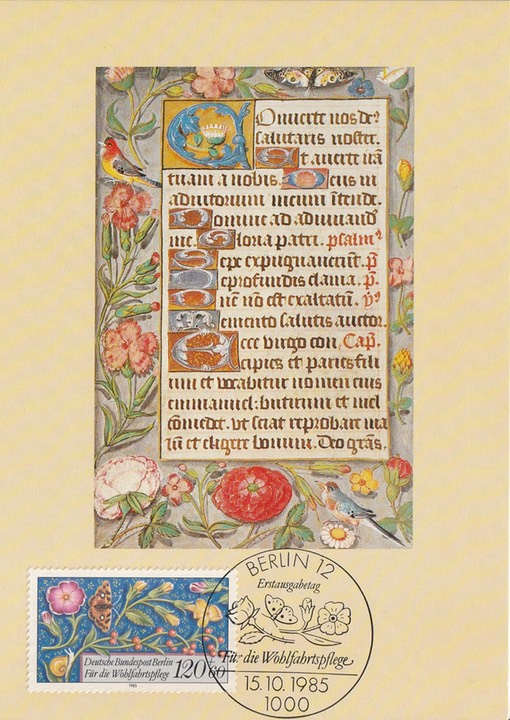 Converte nos deˀ
salutaris noster.
Et averte irā
tuam a nobis. Deus in
adiutorium meum ītende.
Domine ad adiuvandū
me. Gloria patri. psalmꝰ
Sepe expugnaverūt. p̄
De profundis clama. p̄.
Dn̄e nō est exaltatū. ỹ
Memento salutis auctor.
Ecce virgo con Cap̄.
cipiet et pariet fili
um et vocabitur nomen eius
emmanuel: butirum et mel
comedet. Ut sciat reprobare ma
lū et eligere bonum. Deo gr̄as.
BERLIN 12
Erstausgabetag
Für die Wohlfahrtspflege
15.10.1985
1000
Deutsche Bundespost Berlin
Für die Wohlfahrtspflege
120+60
1985